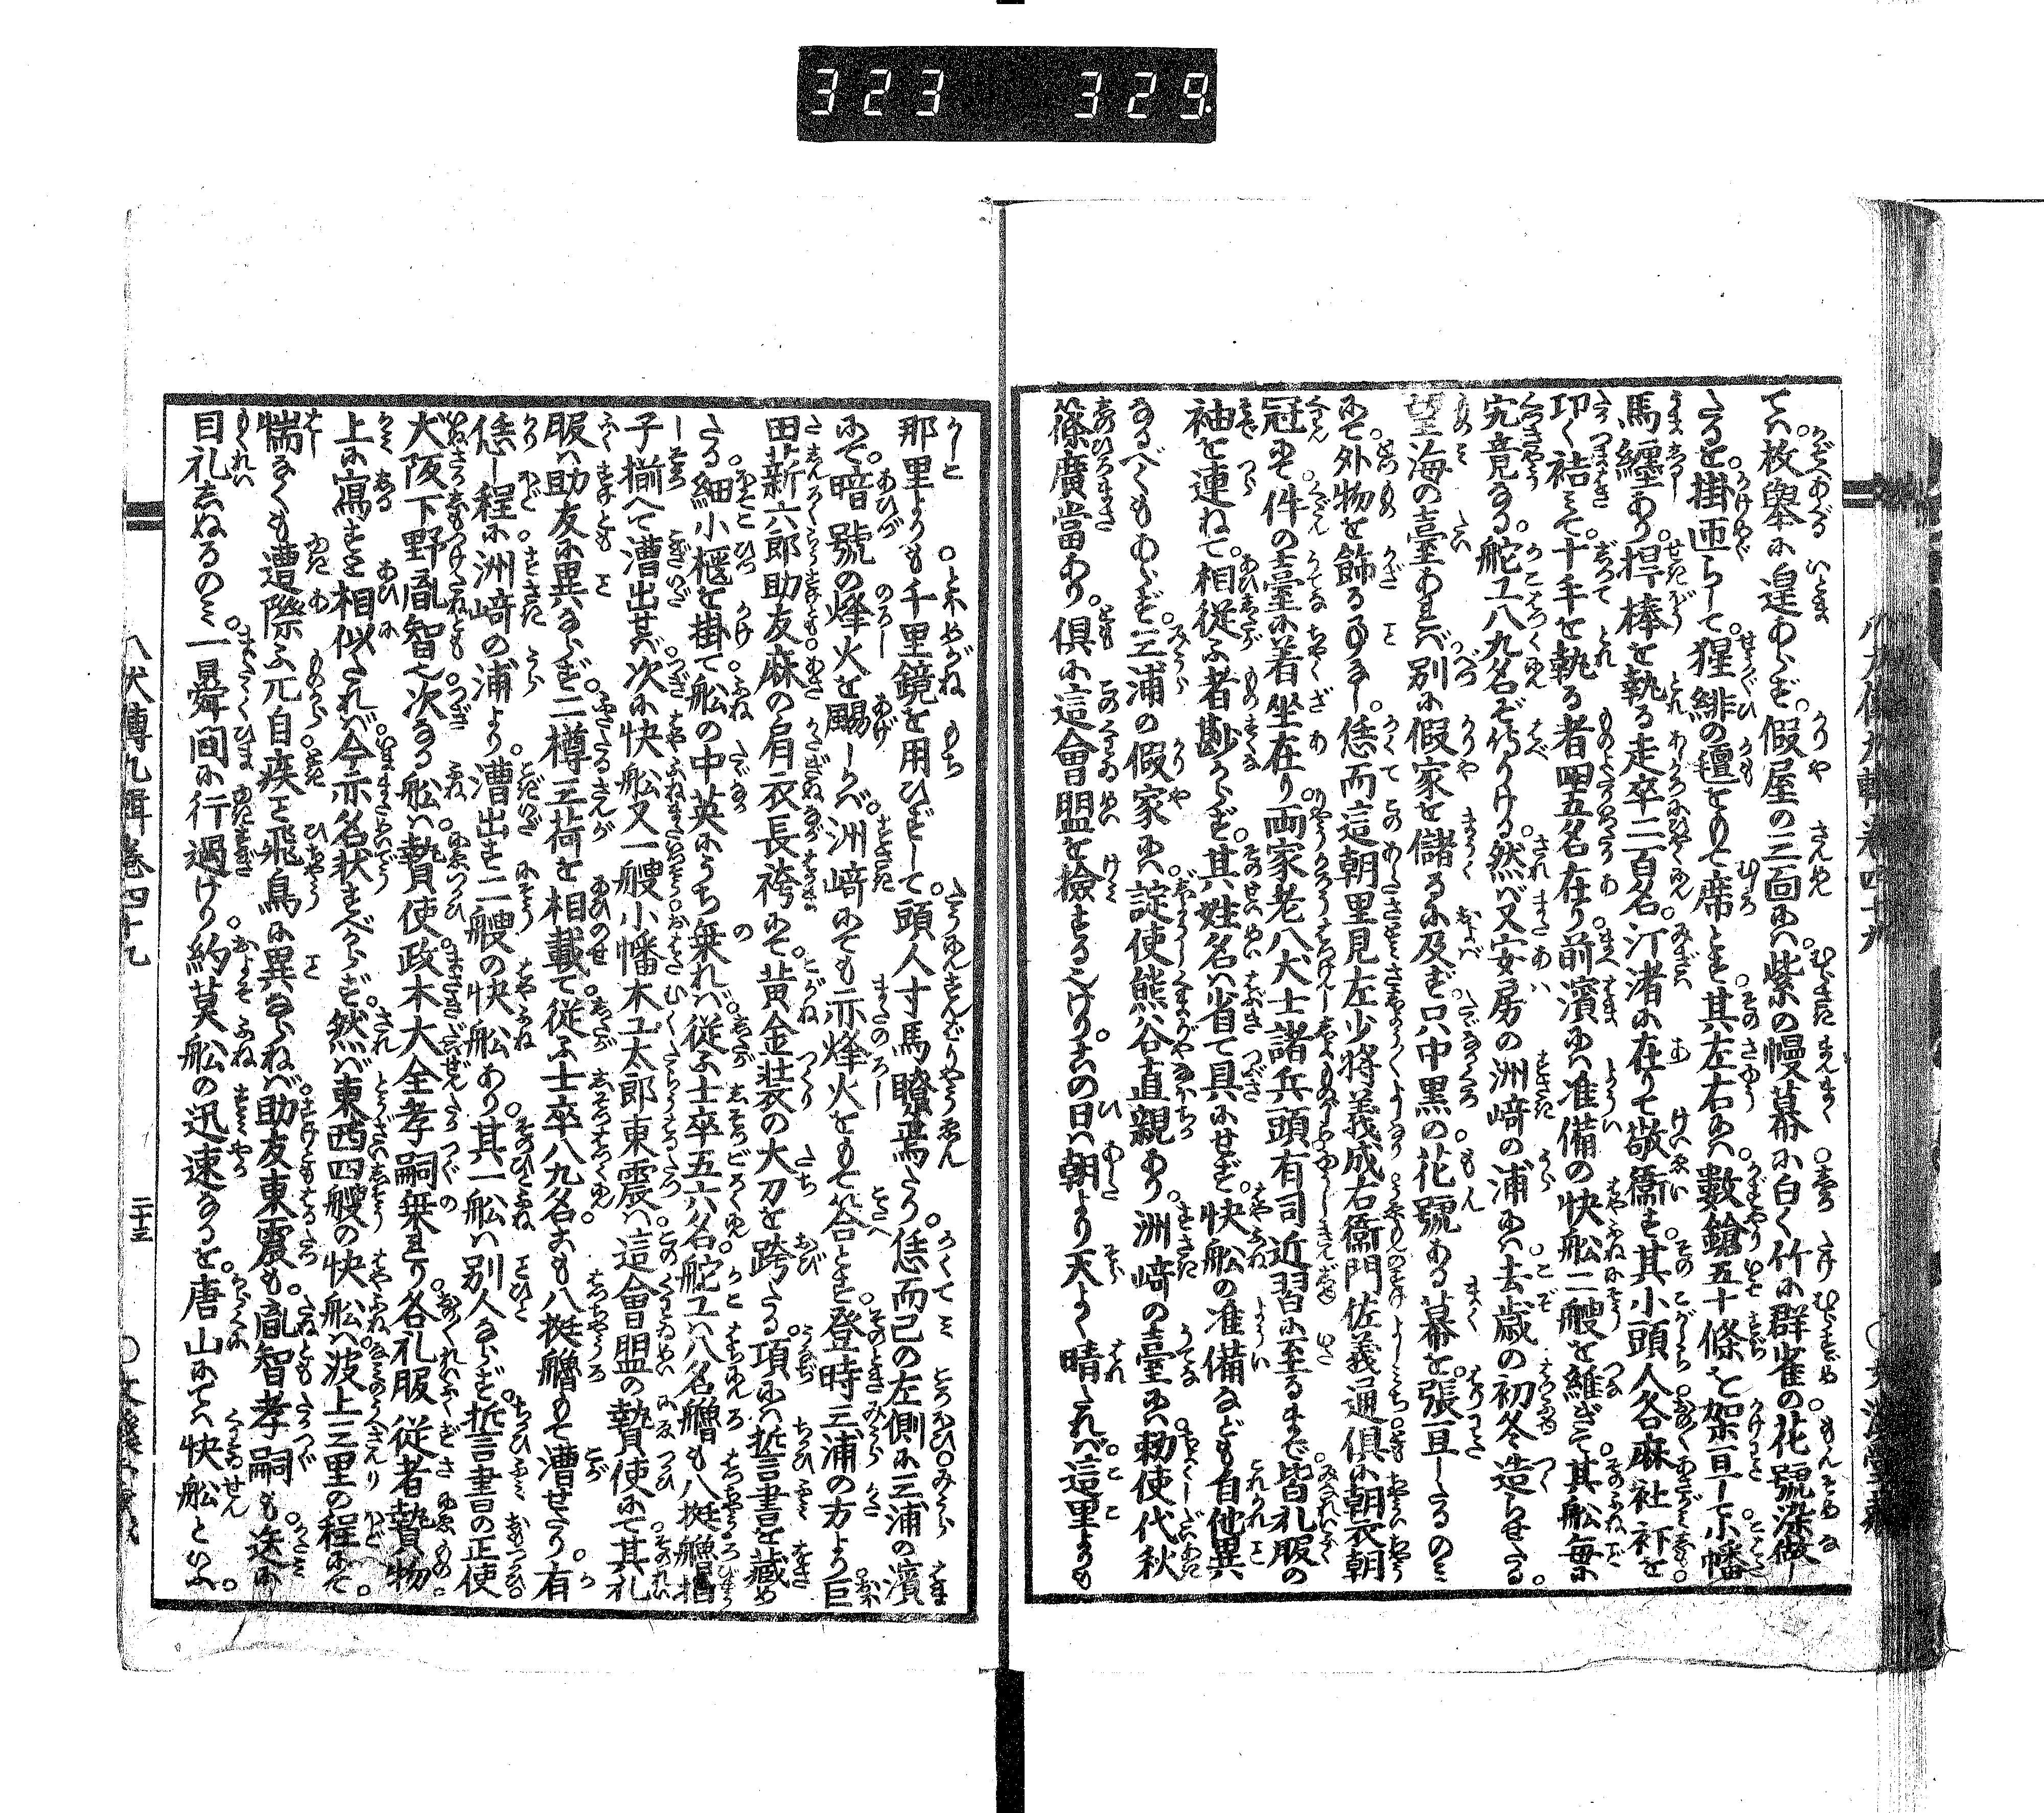 323 329
ては枚挙に遑あらず。假屋の三面には紫の幔幕に白く竹に群雀の花號染做し
たるを掛匝らして。猩緋の氈をもて席とす。其左右には數鎗五十條を架亘して。小幡
馬纏あり。捍棒を執る走卒二百名。汀渚に在りて敬衞す。其小頭人各麻社裃を
卬く袺て。十手を執る者四五名在り。前濱には准備の快船二艘を維ぎて。其船毎に
究竟なる。舵工八九名ぞ侍りける。然ば又安房の洲﨑の浦には。去歳の初冬造らせたる。
望海の臺あれば。別に假家を儲るに及ばず。只中黒の花號ある幕を。張亘したるのみ
にて。外物を飾る事なし。恁而這朝里見左少將義成。右衞門佐義通。倶に朝衣朝
冠にて。件の臺に着坐在り。両家老八犬士諸兵頭。有司近習に至るまで。皆礼服の
袖を連ねて。相從ふ者尠からず。其姓名は省て具にせず。快船の准備なども。自他異
なるべくもあらず。三浦の假家には。諚使熊谷直親あり。洲﨑の臺には。勅使代秋
篠廣當あり。倶に這會盟を撿するなりけり。この日は朝より天よく晴たれば。這里よりも
那里よりも。千里鏡を用ひずして。頭人寸馬瞭焉たり。恁而己の左側に。三浦の濱
にて。暗號の烽火を颺しかば。洲﨑にても亦烽火をもて荅とす。登時三浦の方より。巨
田薪六郎助友。麻の肩衣長袴にて。黄金装の大刀を跨たる。項には誓書を藏め
たる。細小櫃を掛て。船の中英にうち乗れば。從ふ士卒五六名。舵工八名。艪も八挺艪拍
子揃へて漕出せば。次に快船又一艘。小幡木工太郎東震は。這會盟の贄使にて。其礼
服は助友に異ならず。二樽三荷を相載て。從ふ士卒八九名。こも八挺艪もて漕せたり。有
恁し程に洲﨑の浦より。漕出す二艘の快船あり。其一船は別人ならず。誓書の正使
犬阪下野胤智也。次なる船は。贄使政木大全孝嗣乗れり。各礼服從者贄物。
上に寫すと相似たれば。今亦名状すべからず。然ば東西四艘の快船は。波上三里の程にて。
惴なくも遭際ふ。元自疾と飛鳥に異ならねば。助友東震も。胤智孝嗣も。迭に
目礼しぬるのみ。一霎間に行過けり。約莫船の迅速なるを。唐山にては快船といふ。
八犬傳九輯卷四十九
二十三